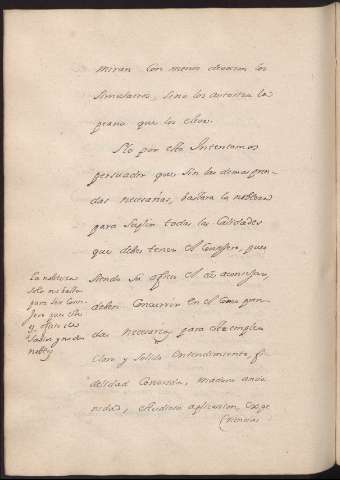 miran con menos devocion los
simulacros, sino los autorisa la
peana que los eleva.
No por esto Intentamos
persuadir que sin las demas pren-
das necesarias, bastara la nobleza
para suplir todas las Calidades
que debe tener el Consejero, pues
siendo su oficio el de aconsejar,
deben Concurrir en el Como pren-
das necesarias para este empleo
Claro y Solido Entendimiento, fi-
delidad Conocida, madura ancia-
nidad, estudiosa aplicacion, Expe
riencia
La nobleza
sola no basta
para ser Conse-
jero
y, oficio es
Sabio y no de
nobles